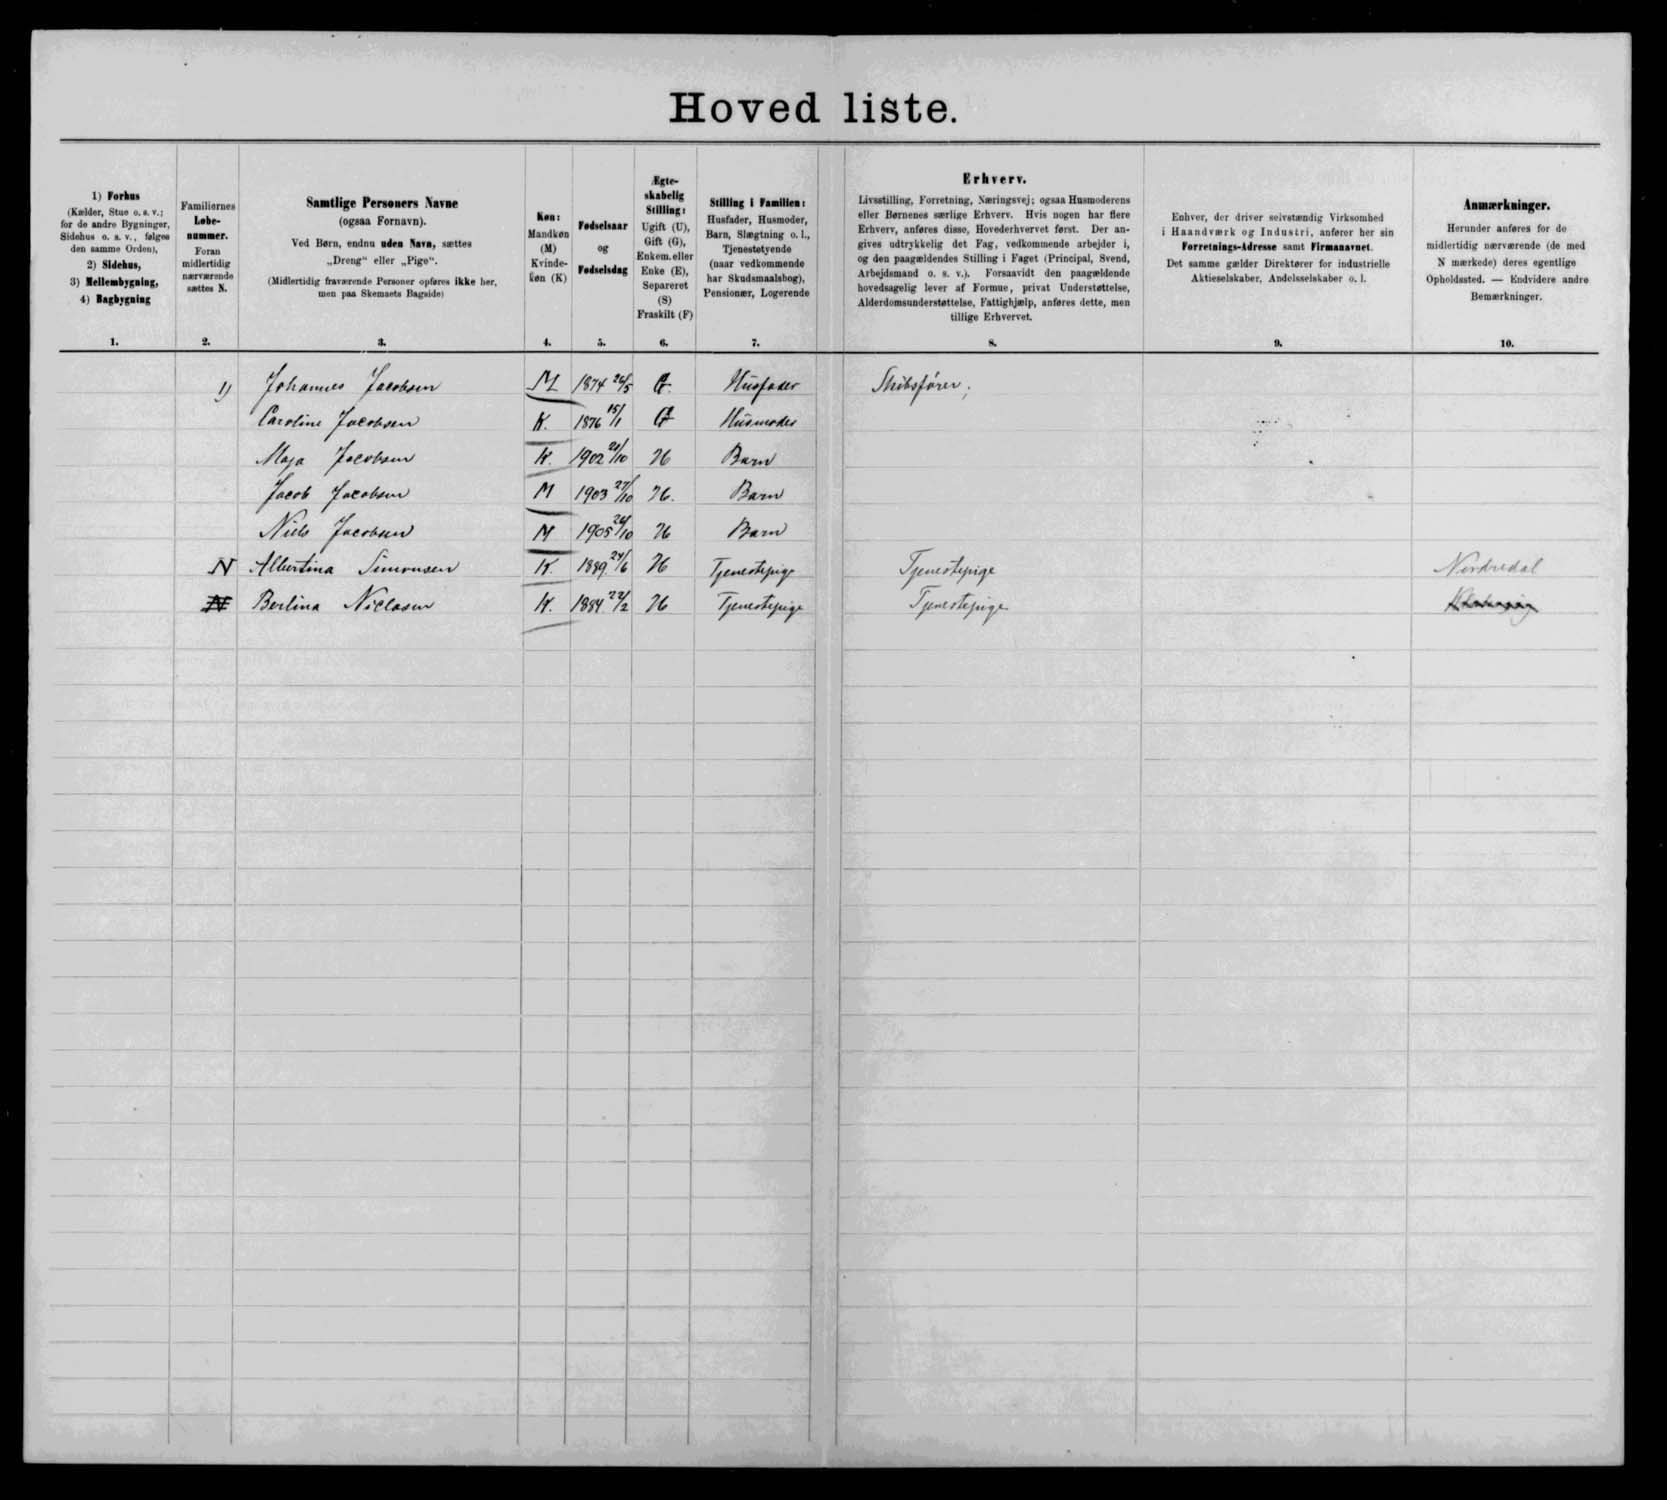 Hoved liste.
1) Forhus
(Kælder, Stue o. s. v.;
for de andre Bygninger,
Sidehus o. s. v., følges
den samme Orden),
2) Sidehus,
3) Mellembygning,
4) Bagbygning
1.
Familiernes
Løbe-
nummer.
Foran
midlertidig
nærværende
sættes N.
2.
Samtlige Personers Navne
(ogsaa Fornavn).
Ved Børn, endnu uden Navn, sættes
„Dreng“ eller „Pige“.
(Midlertidig fraværende Personer opføres ikke her,
men paa Skemaets Bagside)
3.
Køn:
Mandkøn
(M)
Kvinde-
køn (K)
4.
Fødselsaar
og
Fødselsdag
5.
Ægte-
skabelig
Stilling:
Ugift (U),
Gift (G),
Enkem. eller
Enke (E),
Separeret
(S)
Fraskilt (F)
6.
Stilling i Familien:
Husfader, Husmoder,
Barn, Slægtning o. l.,
Tjenestetyende
(naar vedkommende
har Skudsmaalsbog),
Pensionær, Logerende
7.
Erhverv.
Livsstilling, Forretning, Næringsvej; ogsaa Husmoderens
eller Børnenes særlige Erhverv. Hvis nogen har flere
Erhverv, anføres disse, Hovederhvervet først. Der an-
gives udtrykkelig det Fag, vedkommende arbejder i,
og den paagældendes Stilling i Faget (Principal, Svend,
Arbejdsmand o. s. v.). Forsaavidt den paagældende
hovedsagelig lever af Formue, privat Understøttelse,
Alderdomsunderstøttelse, Fattighjælp, anføres dette, men
tillige Erhvervet.
8.
Enhver, der driver selvstændig Virksomhed
i Haandværk og Industri, anfører her sin
Forretnings-Adresse samt Firmanavnet.
Det samme gælder Direktører for industrielle
Aktieselskaber, Andelsselskaber o. l.
9.
Anmærkninger.
Herunder anføres for de
midlertidig nærværende (de med
N mærkede) deres egentlige
Opholdssted. — Endvidere andre
Bemærkninger.
10.
1) Johannes Jacobsen M 1874 26/5 G. Husfader Skibsfører;
Caroline Jacobsen K. 1876 15/1 G Husmoder
Maja Jacobsen K. 1902 20/10 U Barn
Jacob Jacobsen M 1903 27/10 U. Barn
Niels Jacobsen M 1905 26/10 U Barn
N Albertina Simonsen K. 1889. 24/6 U Tjenestepige Tjenestepige Nordredal
N Berlina Niclasen K. 1884. 22/2 U Tjenestepige Tjenestepige